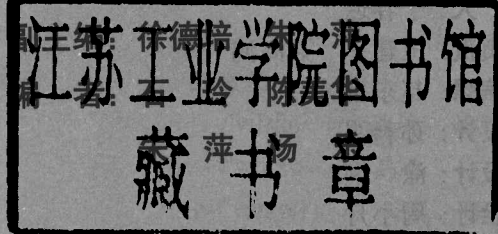 江苏工业学院图书馆
藏书章
副主编：徐德培 朱
编 者：石 陈
朱 萍 杨